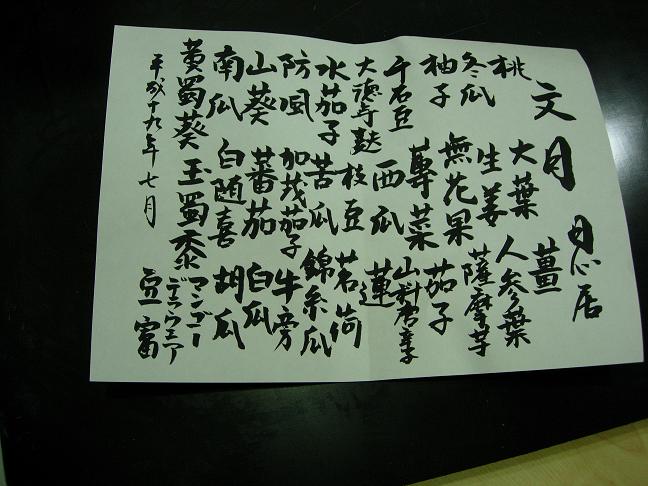 文月 月心居
薑
大葉 人参葉
桃 生姜 薩摩芋
冬瓜 無花果 茄子
柚子 蓴菜 山科唐辛子
千石豆 西瓜 蓮
大徳寺麩 枝豆 茗荷
水茄子 苦瓜 錦糸瓜
防風 加茂茄子 牛旁
山葵 蕃茄 白瓜
南瓜 白随喜 胡瓜
黄蜀葵 玉蜀黍 マンゴー
デラウェア
豆富
平成十九年七月